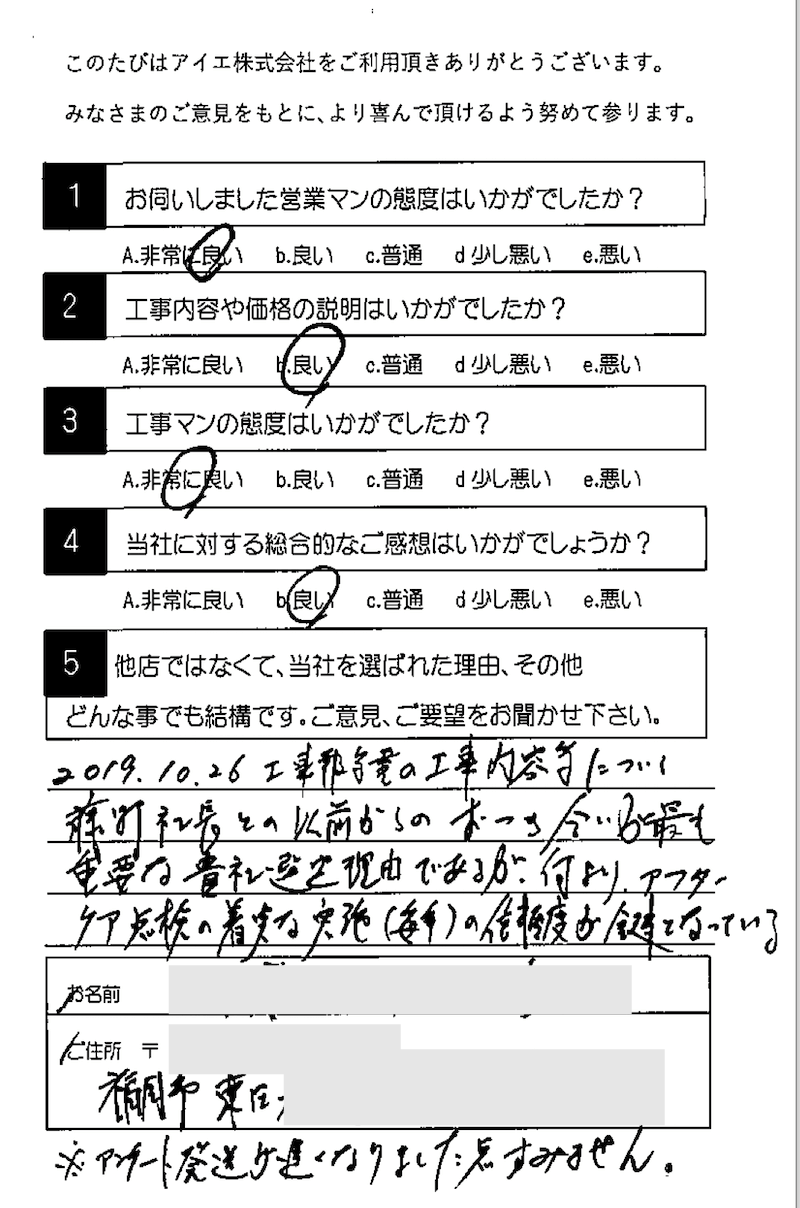 このたびはアイエ株式会社をご利用頂きありがとうございます。
みなさまのご意見をもとに、より喜んで頂けるよう努めて参ります。
1 お伺いしました営業マンの態度はいかがでしたか？
A.非常に良い b.良い c.普通 d少し悪い e.悪い
2 工事内容や価格の説明はいかがでしたか？
A.非常に良い b.良い c.普通 d少し悪い e.悪い
3 工事マンの態度はいかがでしたか？
A.非常に良い b.良い c.普通 d少し悪い e.悪い
4 当社に対する総合的なご感想はいかがでしょうか？
A.非常に良い b.良い c.普通 d少し悪い e.悪い
5 他店ではなくて、当社を選ばれた理由、その他
どんな事でも結構です。ご意見、ご要望をお聞かせ下さい。
2019.10.26 工事の工事内容等につい
社長との以前からのおつき合いが最も
重要な貴社選定理由であるが、何より、アフター
ケア点検の着実な実施(毎年)の信頼度が鍵となっている
お名前
ご住所 〒
福岡市 東区
※アンケート発送が遅くなりました点すみません。